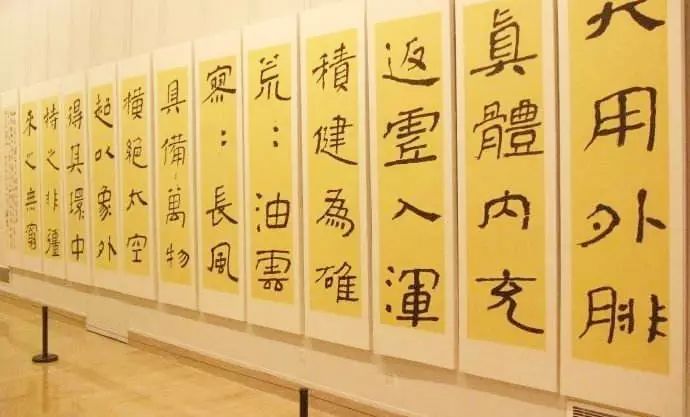 大用外腓
眞體内充
返虛入渾
積健為雄
荒：油雲
寥：長風
具備萬物
橫絕太空
超以象外
得其環中
持之非彊
來之無窮